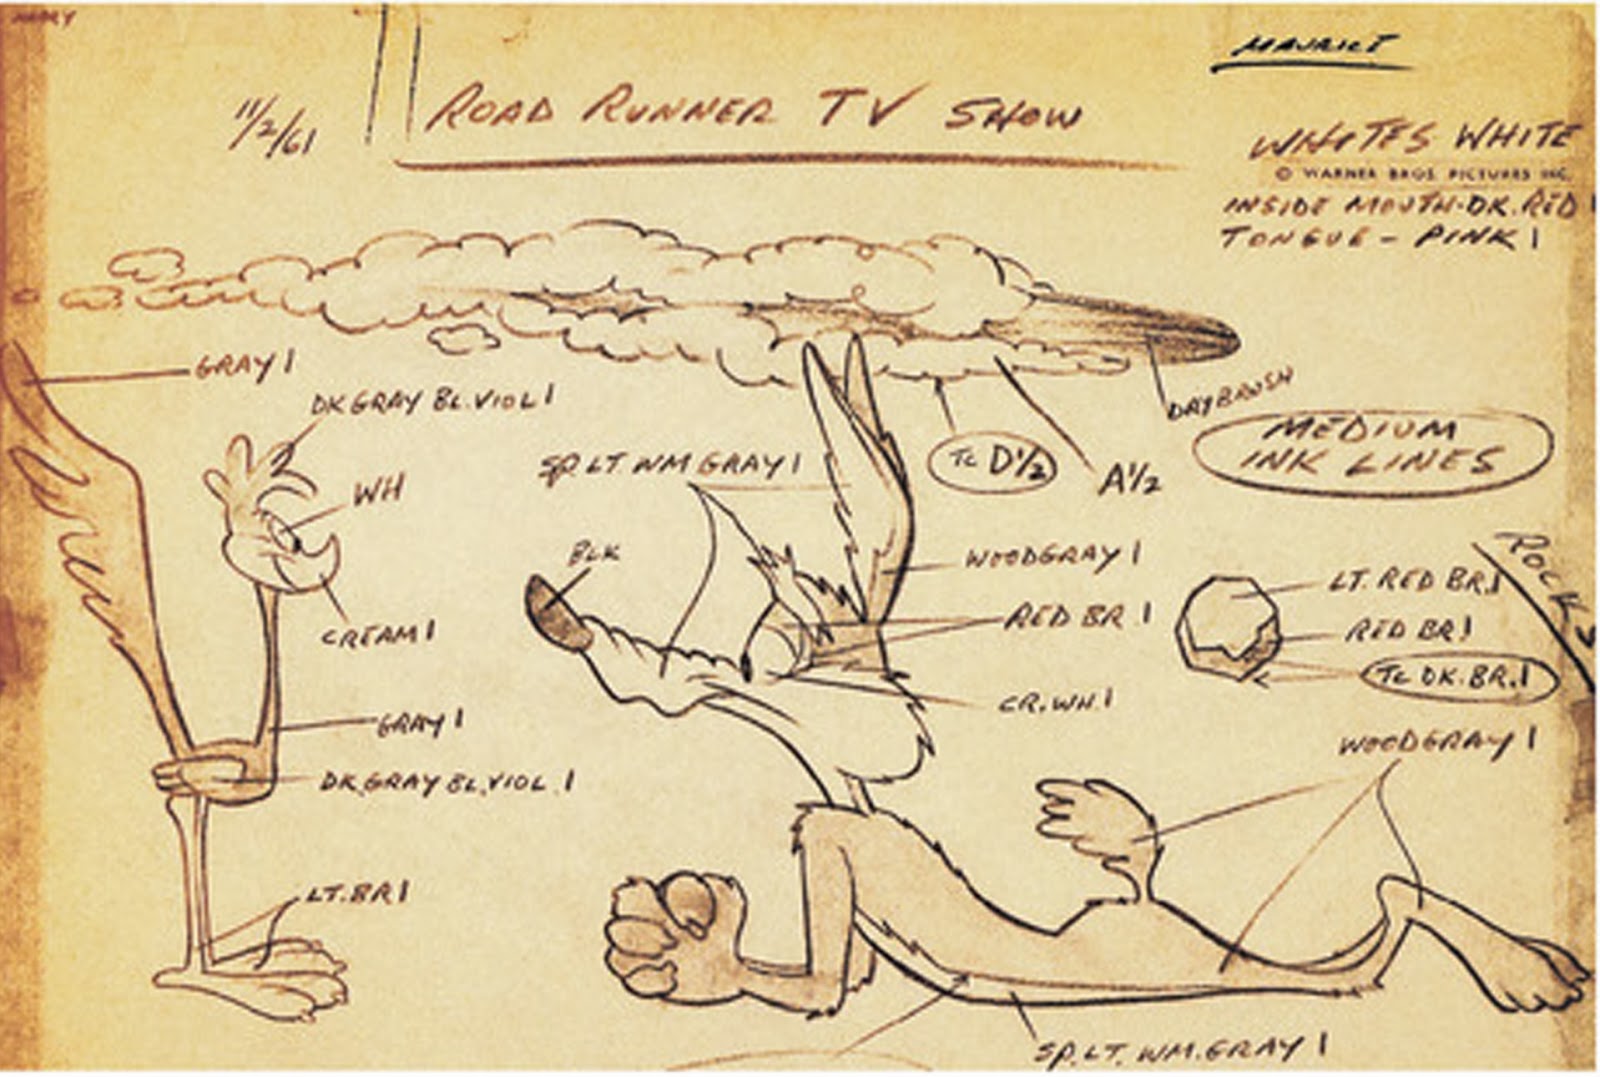 MAURICE
11/2/61
ROAD RUNNER TV SHOW
WHITES WHITE
© WARNER BROS. PICTURES INC.
INSIDE MOUTH-DK. RED 1
TONGUE - PINK 1
GRAY 1
DK GRAY BL. VIOL 1
DRYBRUSH
MEDIUM
INK LINES
SP. LT. WM GRAY 1
TC D1/2
A1/2
WH
BLK
WOODGRAY 1
ROCKS
LT. RED BR. 1
CREAM 1
RED BR 1
RED BR 1
TC DK. BR. 1
CR. WH. 1
GRAY 1
WOODGRAY 1
DK. GRAY BL. VIOL. 1
LT. BR 1
SP. LT. WM. GRAY 1